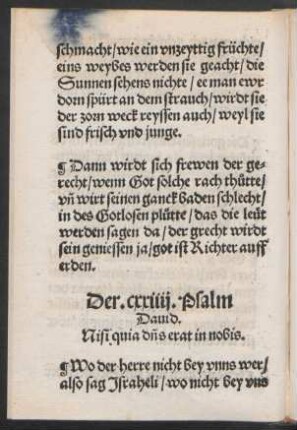 schmacht/wie ein vnzeyttig früchte/
eins weybes werden sie geacht/die
Sunnen sehens nichte/ee man ewr
dorn spürt an dem strauch/wirdt sie
der zorn weck reyssen auch/weyl sie
sind frisch vnd junge.
¶ Dann wirdt sich frewen der ge-
recht/wenn Got solche rach thütte/
vn̄ wirt seinen ganck baden schlecht/
in des Gotlosen plütte/das die leüt
werden sagen da/der grecht wirdt
sein geniessen ja/got ist Richter auff
erden.
Der .cxxiiij. Psalm
Dauid.
Nisi quia dn̄s erat in nobis.
¶ Wo der herre nicht bey vnns wer/
also sag Israheli/wo nicht bey vns